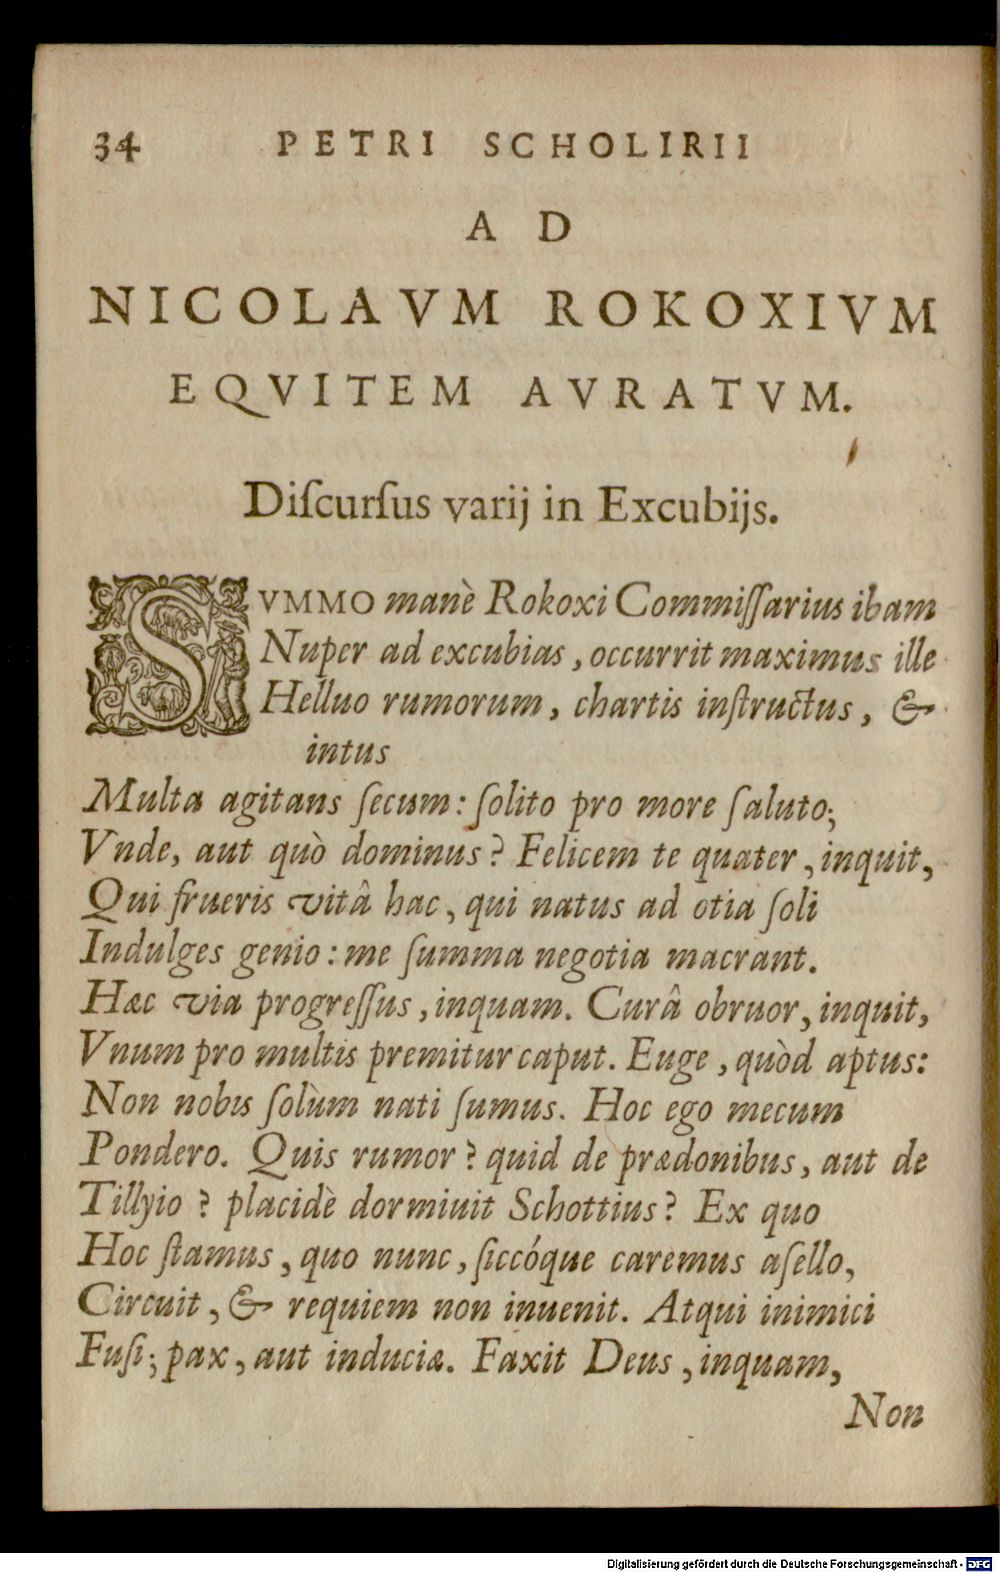 34 PETRI SCHOLIRII
AD
NICOLAVM ROKOXIVM
EQVITEM AVRATVM.
Diſcurſus varij in Excubijs.
SVMMO manè Rokoxi Commiſſarius ibam
Nuper ad excubias, occurrit maximus ille
Helluo rumorum, chartis inſtructus, &
intus
Multa agitans ſecum: ſolito pro more ſaluto;
Vnde, aut quò dominus? Felicem te quater, inquit,
Qui frueris vitâ hac, qui natus ad otia ſoli
Indulges genio: me ſumma negotia macrant.
Hæc via progreſſus, inquam. Curâ obruor, inquit,
Vnum pro multis premitur caput. Euge, quòd aptus:
Non nobis ſolùm nati ſumus. Hoc ego mecum
Pondero. Quis rumor? quid de prædonibus, aut de
Tillyio? placidè dormiuit Schottius? Ex quo
Hoc ſtamus, quo nunc, ſiccóque caremus aſello,
Circuit, & requiem non inuenit. Atqui inimici
Fuſi; pax, aut induciæ. Faxit Deus, inquam,
Non
Digitalisierung gefördert durch die Deutsche Forschungsgemeinschaft - DFG